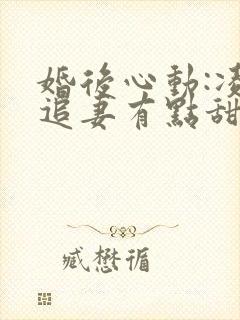 婚後心動:凌
追妻有點甜
臧懋循